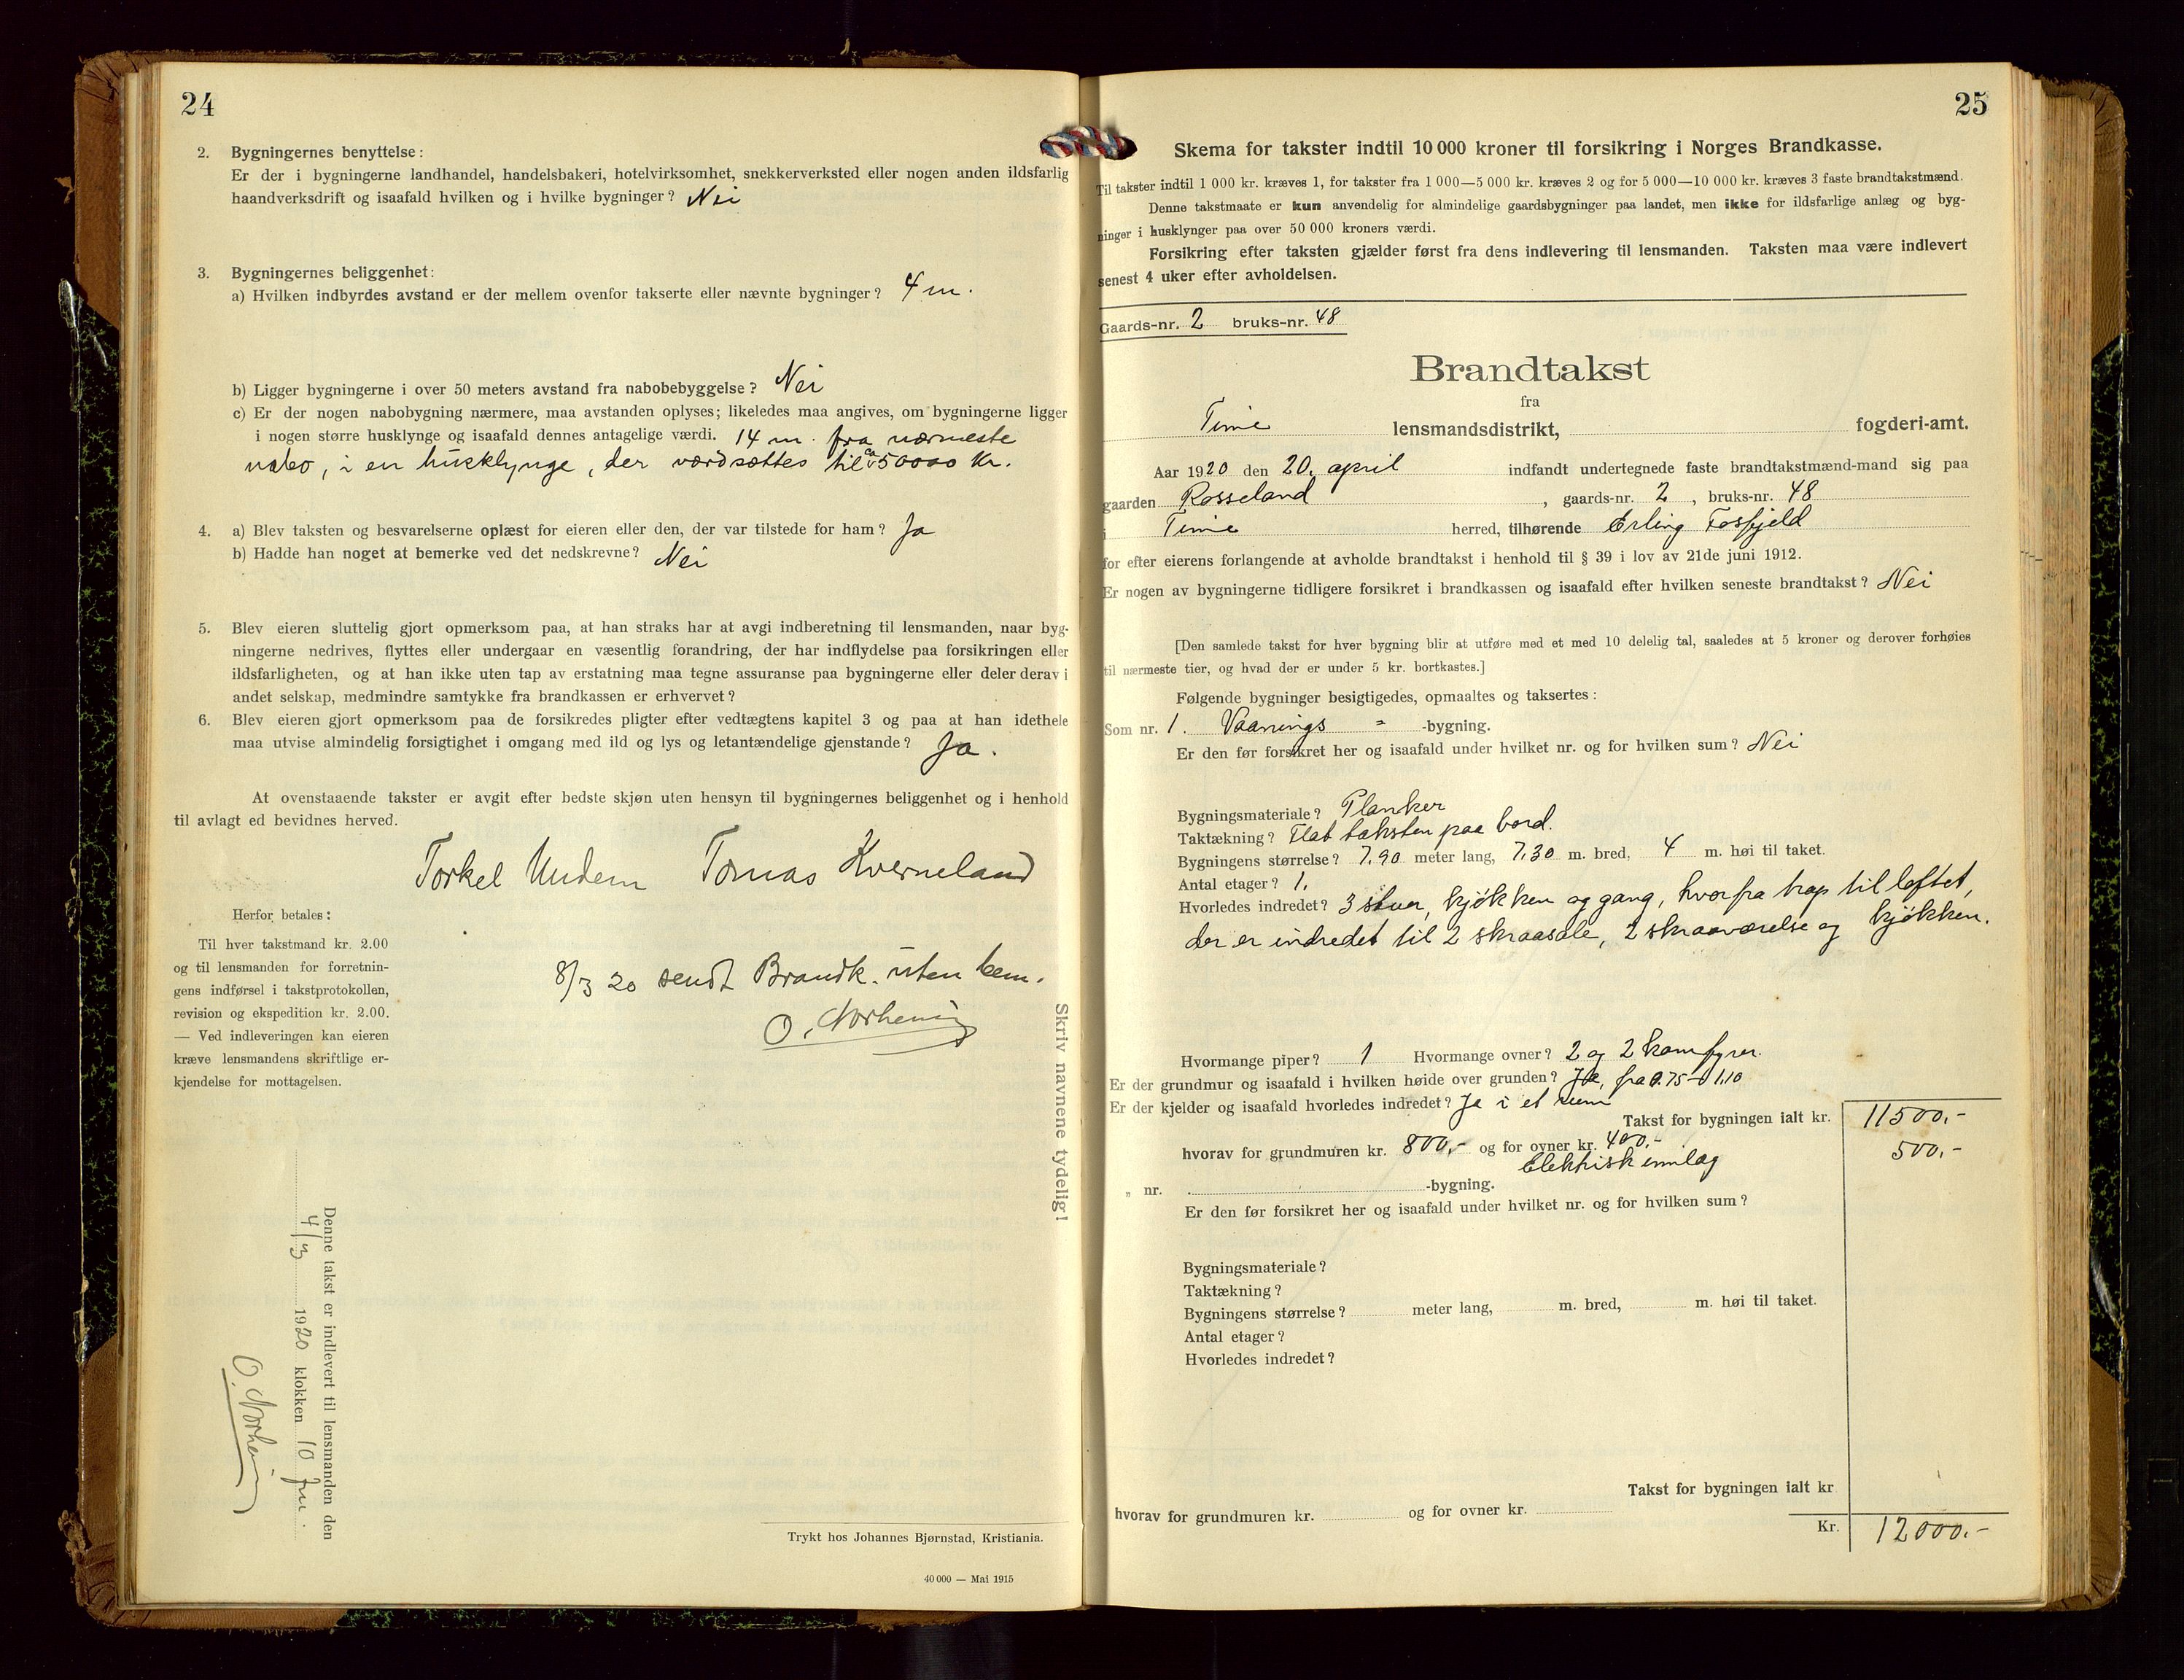 24
2. Bygningernes benyttelse:
Er der i bygningerne landhandel, handelsbakeri, hotelvirksomhet, snekkerverksted eller nogen anden ildsfarlig
haandverksdrift og isaafald hvilken og i hvilke bygninger? Nei
3. Bygningernes beliggenhet:
a) Hvilken indbyrdes avstand er der mellem ovenfor takserte eller nævnte bygninger? 4 m.
b) Ligger bygningerne i over 50 meters avstand fra nabobebyggelse? Nei
c) Er der nogen nabobygning nærmere, maa avstanden oplyses; likeledes maa angives, om bygningerne ligger
i nogen større husklynge og isaafald dennes antagelige værdi. 14 m. fra nærmeste
nabo, i en husklynge, der værdsættes til ca 50000 Kr.
4. a) Blev taksten og besvarelserne oplæst for eieren eller den, der var tilstede for ham? Ja
b) Hadde han noget at bemerke ved det nedskrevne? Nei
5. Blev eieren sluttelig gjort opmerksom paa, at han straks har at avgi indberetning til lensmanden, naar byg-
ningerne nedrives, flyttes eller undergaar en væsentlig forandring, der har indflydelse paa forsikringen eller
ildsfarligheten, og at han ikke uten tap av erstatning maa tegne assuranse paa bygningerne eller deler derav i
andet selskap, medmindre samtykke fra brandkassen er erhvervet?
6. Blev eieren gjort opmerksom paa de forsikredes pligter efter vedtægtens kapitel 3 og paa at han idethele
maa utvise almindelig forsigtighet i omgang med ild og lys og letantændelige gjenstande? Ja.
At ovenstaaende takster er avgit efter bedste skjøn uten hensyn til bygningernes beliggenhet og i henhold
til avlagt ed bevidnes herved.
Torkel Undem Tomas Kverneland
Herfor betales:
Til hver takstmand kr. 2.00
og til lensmanden for forretnin-
gens indførsel i takstprotokollen,
revision og ekspedition kr. 2.00.
— Ved indleveringen kan eieren
kræve lensmandens skriftlige er-
kjendelse for mottagelsen.
8/3 20 sendt Brandk. uten bem.
Skriv navnene tydelig!
Denne takst er indlevert til lensmanden den
4/3 1920 klokken 10 fm.
Trykt hos Johannes Bjørnstad, Kristiania.
40 000 — Mai 1915
25
Skema for takster indtil 10 000 kroner til forsikring i Norges Brandkasse.
Til takster indtil 1 000 kr. kræves 1, for takster fra 1 000—5 000 kr. kræves 2 og for 5 000—10 000 kr. kræves 3 faste brandtakstmænd.
Denne takstmaate er kun anvendelig for almindelige gaardsbygninger paa landet, men ikke for ildsfarlige anlæg og byg-
ninger i husklynger paa over 50 000 kroners værdi.
Forsikring efter taksten gjælder først fra dens indlevering til lensmanden. Taksten maa være indlevert
senest 4 uker efter avholdelsen.
Gaards-nr. 2 bruks-nr. 48
Brandtakst
fra
Time lensmandsdistrikt, fogderi-amt.
Aar 1920 den 20. april indfandt undertegnede faste brandtakstmænd-mand sig paa
gaarden Rosseland, gaards-nr. 2, bruks-nr. 48
i Time herred, tilhørende Erling Fosfjeld
for efter eierens forlangende at avholde brandtakst i henhold til § 39 i lov av 21de juni 1912.
Er nogen av bygningerne tidligere forsikret i brandkassen og isaafald efter hvilken seneste brandtakst? Nei
[Den samlede takst for hver bygning blir at utføre med et med 10 delelig tal, saaledes at 5 kroner og derover forhøies
til nærmeste tier, og hvad der er under 5 kr. bortkastes.]
Følgende bygninger besigtigedes, opmaaltes og taksertes:
Som nr. 1. Vaanings = -bygning.
Er den før forsikret her og isaafald under hvilket nr. og for hvilken sum? Nei
Bygningsmateriale? Planker
Taktækning? Flat taksten paa bord.
Bygningens størrelse? 7,90 meter lang, 7,30 m. bred, 4 m. høi til taket.
Antal etager? 1.
Hvorledes indredet? 3 stuer, kjøkken og gang, hvorfra trap til loftet,
der er indredet til 2 skraasale, 2 skraaværelse og kjøkken.
Hvormange piper? 1 Hvormange ovner? 2 og 2 komfyrer.
Er der grundmur og isaafald i hvilken høide over grunden? Ja, fra 0.75 - 1.10
Er der kjelder og isaafald hvorledes indredet? Ja i et rum
Takst for bygningen ialt kr. 11500,-
hvorav for grundmuren kr. 800,- og for ovner kr. 400,-
Elektrisk innlæg 500,-
„ nr. -bygning.
Er den før forsikret her og isaafald under hvilket nr. og for hvilken sum?
Bygningsmateriale?
Taktækning?
Bygningens størrelse? meter lang, m. bred, m. høi til taket.
Antal etager?
Hvorledes indredet?
Takst for bygningen ialt kr
hvorav for grundmuren kr. og for ovner kr.
Kr. 12000,-